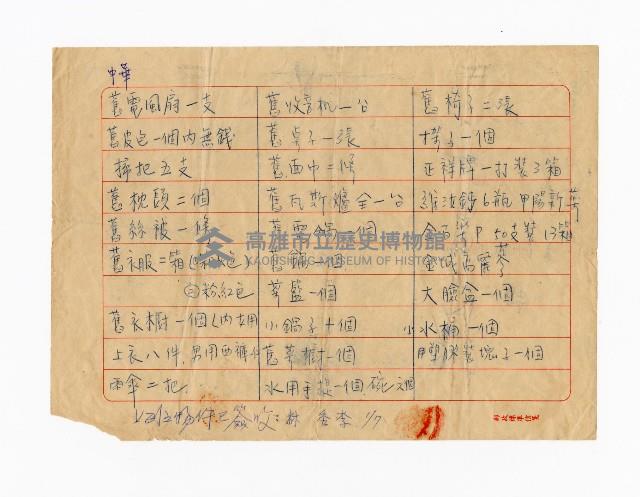 中華
舊電風扇一支
舊皮包一個內無錢
掃把五支
舊枕頭二個
舊絲被一條
舊衣服二箱
粉紅色
舊衣橱一個(內女用
上衣八件,男用西褲
雨傘二把
舊收音机一台
舊桌子一張
舊面巾二條
舊瓦斯爐全一台
舊電鍋一個
舊鍋一個
菜籃一個
小鍋子十個
舊菜橱一個
水用手提一個碗
舊椅子二張
梯子一個
正祥牌一打裝3箱
6瓶
P 50支裝 13箱
金城高麗蔘
大臉盆一個
小水桶一個
塑膠
高雄市立歷史博物館
KAOHSIUNG MUSEUM OF HISTORY
簽收:林 香李 1/7